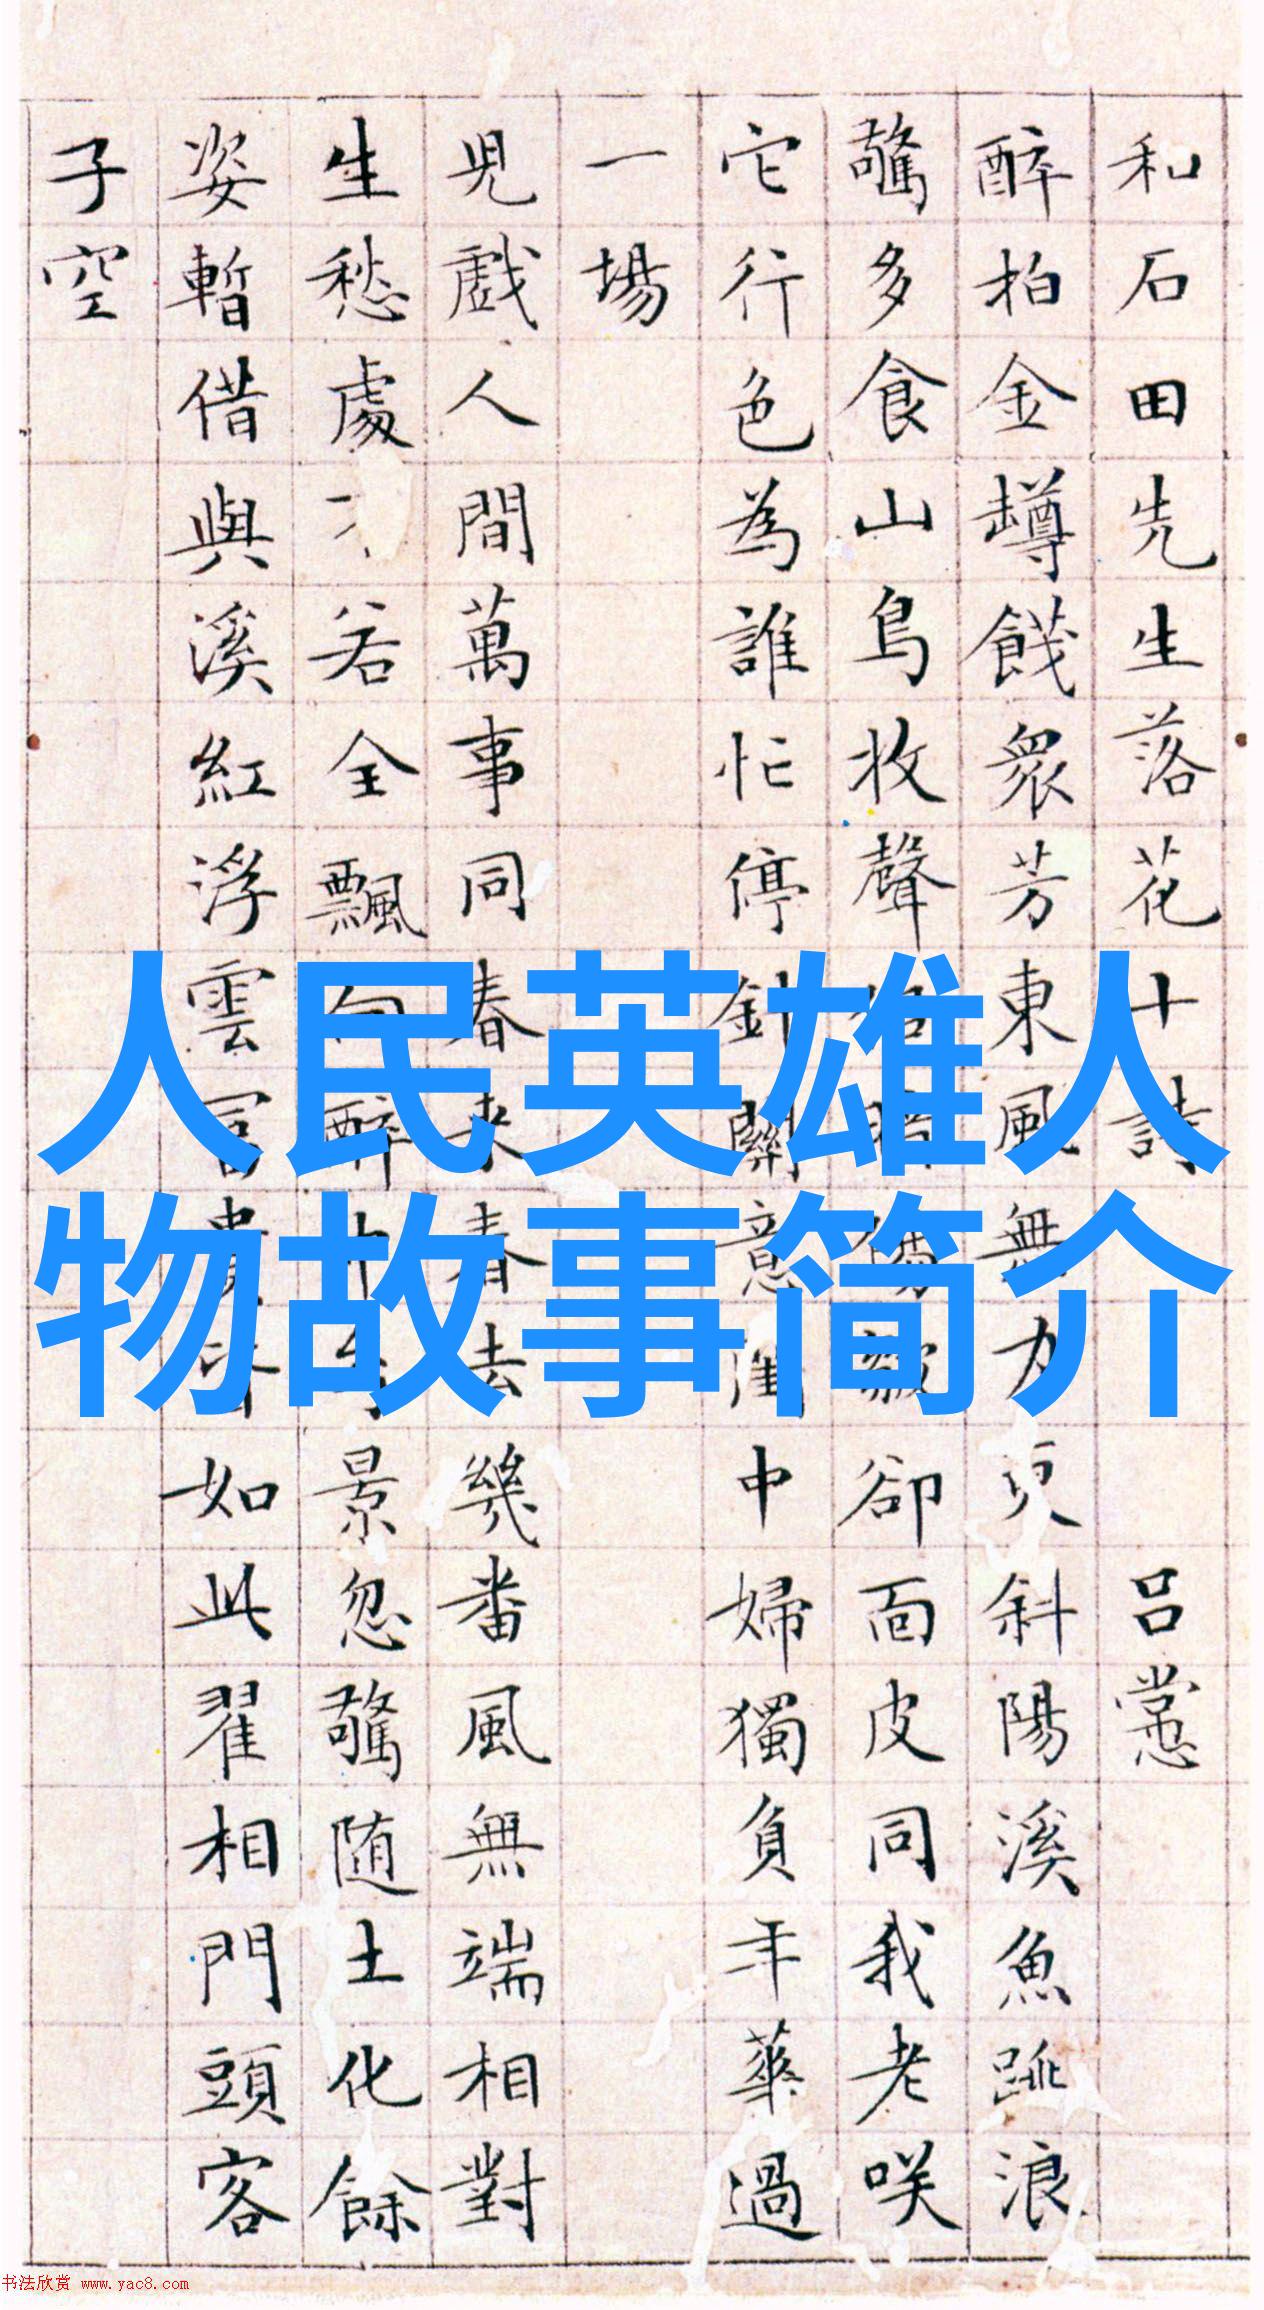 和石田先生落花十詩 吕㦂
醉拍金罇餞衆芳東風無力更斜陽溪魚跳浪
驚多食山鳥收聲卻面皮同我老咲
它行色為誰忙停針意中婦獨負年華過
一場
兒戲人間萬事同春来春去幾番風無端相對
生愁處若全飄向醉景忽驚随土化餘
姿暫借與溪紅浮雲富貴如此翟相門頭客
子空
人民英雄人
物故事简介
书法欣赏 www.yac8.com